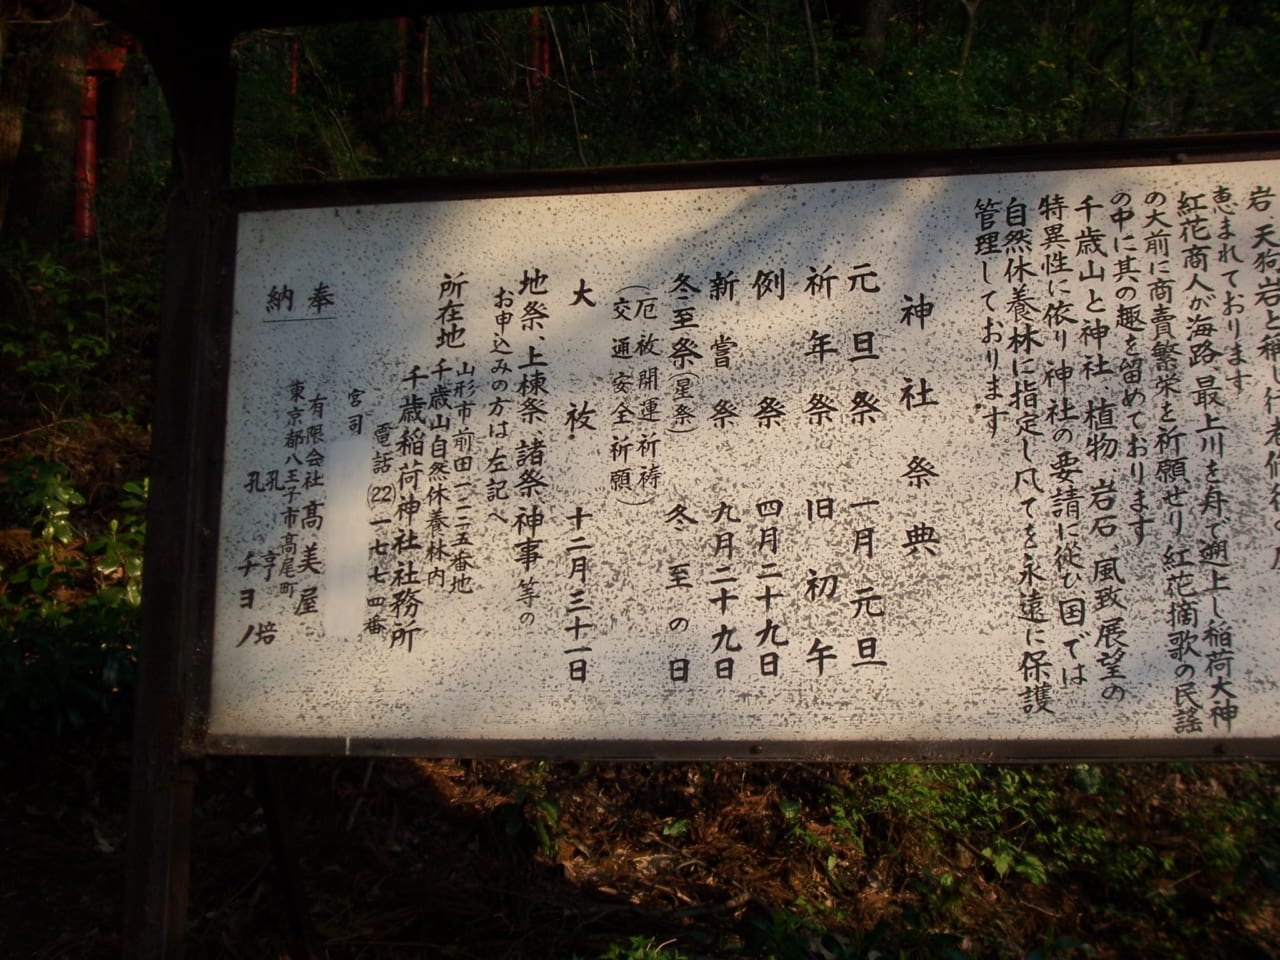 岩、天狗岩と称し行者修行の
恵まれております
紅花商人が海路、最上川を舟で遡上し稲荷大神
の大前に商責繁栄を祈願せり 紅花摘歌の民謡
の中に其の趣を留めております
千歳山と神社 植物 岩石 風致展望の
特異性に依り神社の要請に従ひ国では
自然休養林に指定し凡てを永遠に保護
管理しております
神社祭典
元旦祭 一月元旦
祈年祭 旧初午
例祭 四月二十九日
新嘗祭 九月二十九日
冬至祭(星祭) 冬至の日
(厄祓開運祈祷
交通安全祈願)
大祓 十二月三十一日
地祭、上棟祭 諸祭神事等の
お申込みの方は左記へ
所在地 山形市前田一二五番地
千歳山自然休養林内
千歳稲荷神社社務所
電話(22)一七七四番
宮司
奉納
有限会社 高美屋
東京都八王子市高尾町
孔 亨培
孔 チヨノ